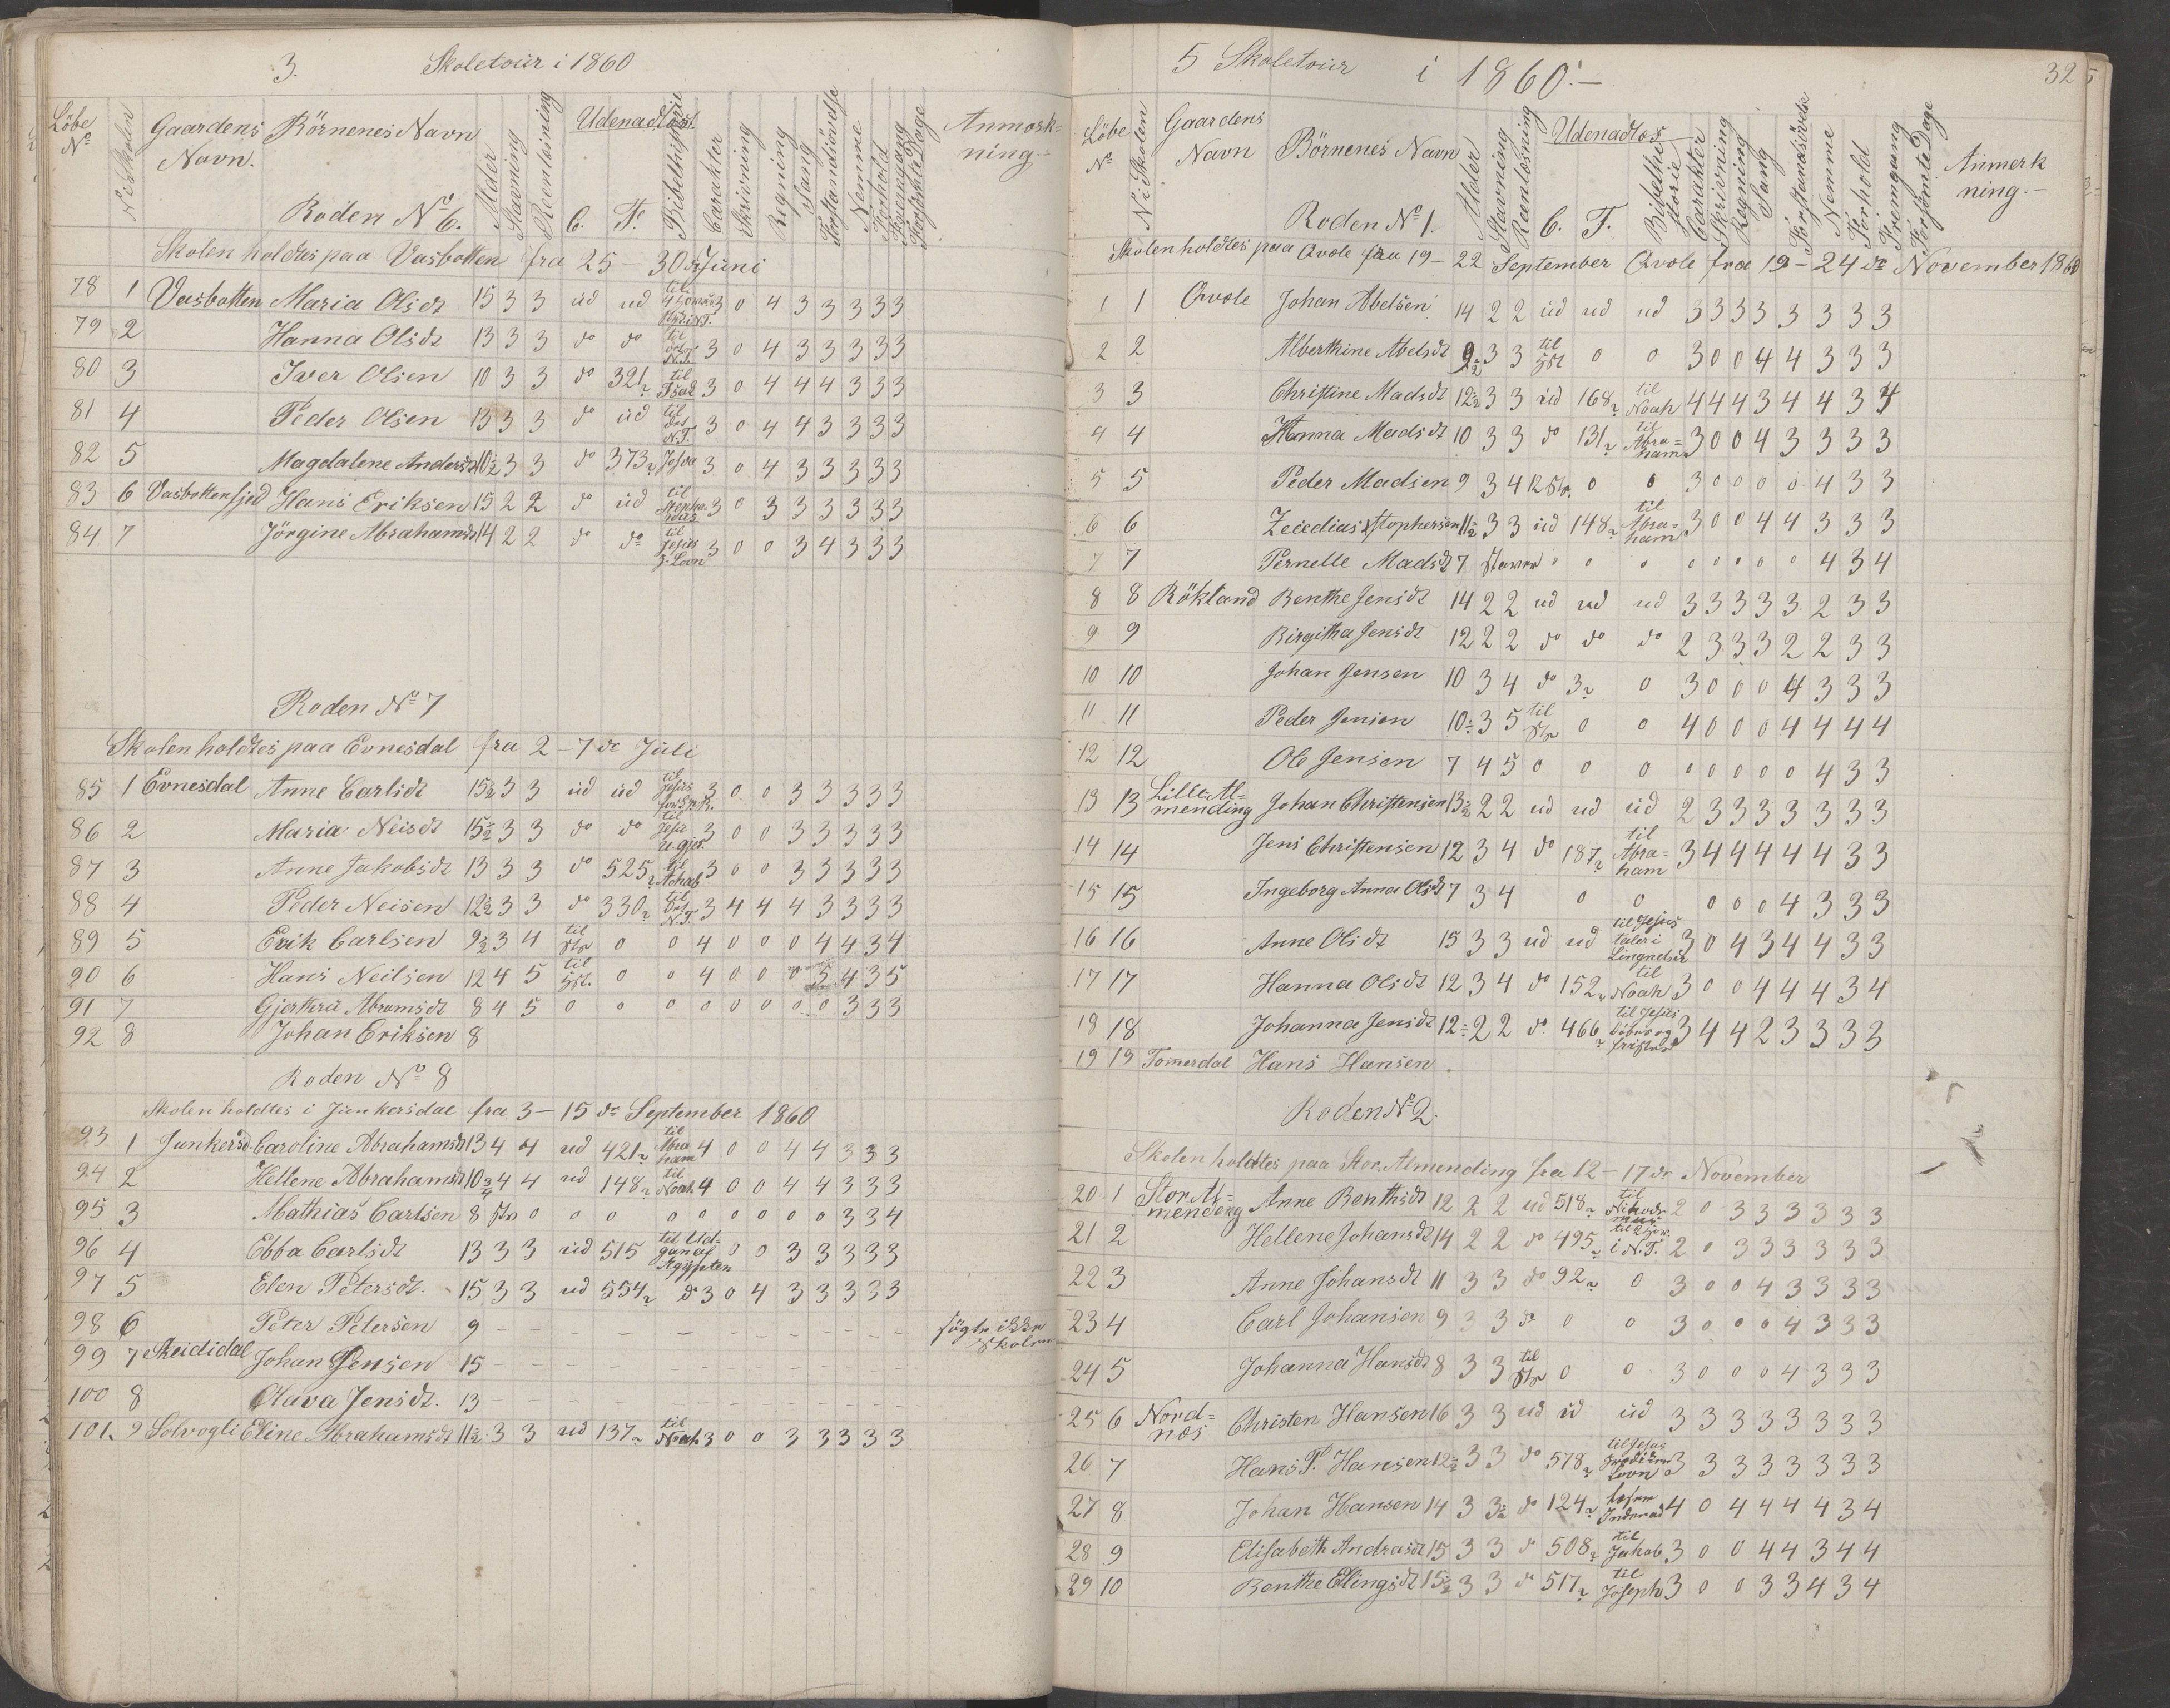 3. Skoletour i 1860
Löbe No N i Skolen Gaardens Navn. Börnenes Navn Alder Stavning Reenlæsning Udenadlæs. C. F. Bibelhistorie Carakter Skrivning Regning Sang Forstandsøvelse Nemme Forhold Fremgang Forsømte Dage Anmærk=
ning.-
Roden No 6.
Skolen holdtes paa Vasbotten fra 25 - 30 de Juni
78 1 Vasbotten Maria Olsdt 15 3 3 ud ud til 3 0 4 3 3 3 3 3
79 2 Hanna Olsdt 13 3 3 do do til det N.T. 3 0 4 3 3 3 3 3
80 3 Iver Olsen 10 3 3 do 321 til Isak 3 0 4 4 4 3 3 3
81 4 Peder Olsen 13 3 3 do ud til det N.T. 3 0 4 4 3 3 3 3
82 5 Magdalene Andersdt 10½ 3 3 do 373 Josva 3 0 4 3 3 3 3 3
83 6 Vasbottenfjed Hans Eriksen 15 2 2 do ud til 3 0 3 3 3 3 3 3
84 7 Jörgine Abrahamsdt 14 2 2 do do til Jesus 3 0 0 3 4 3 3 3
Roden No 7
Skolen holdtes paa Evnesdal fra 2 - 7 de Juli
85 1 Evnesdal Anne Carlsdt 15½ 3 3 ud ud til Jesus 3 0 0 3 3 3 3 3
86 2 Maria Neisdt 15½ 3 3 do do til Jesu 3 0 0 3 3 3 3 3
87 3 Anne Jakobsdt 13 3 3 do 525 til Achab 3 0 0 3 3 3 3 3
88 4 Peder Neisen 12½ 3 3 do 330 til det N.T. 3 4 4 4 3 3 3 3
89 5 Erik Carlsen 9½ 3 4 til 0 0 4 0 0 0 4 4 3 4
90 6 Hans Neilsen 12 4 5 til 0 0 4 0 0 0 5 4 3 5
91 7 Gjertru Abramsdt 8 4 5 0 0 0 0 0 0 0 0 3 3 3
92 8 Johan Eriksen 8
Roden No 8
Skolen holdtes i Junkersdal fra 3 - 15 de September 1860
93 1 Junkersd. Caroline Abrahamsdt 13 4 4 ud 421 til Abraham 4 0 0 4 4 3 3 3
94 2 Hellene Abrahamsdt 10¾ 4 4 ud 148 til Noah 4 0 0 4 4 3 3 3
95 3 Mathias Carlsen 8 0 0 0 0 0 0 0 0 0 3 3 4
96 4 Ebba Carlsdt 13 3 3 ud 515 til Udgan af Ægypten 0 0 3 3 3 3 3
97 5 Elen Petersdt. 15 3 3 ud 554 do 3 0 4 3 3 3 3 3
98 6 Peter Petersen 9 - - - - - - - søgte ikke
Skolen
99 7 Skeididal Johan Jensen 15 - - - - - - -
100 8 Olava Jensdt. 13 - - - - - - -
101. 9 Solvogli Eline Abrahamsdt 11½ 3 3 ud 137 til Noah 3 0 0 3 3 3 3 3
5 Skoletour i 1860.- 32
Löbe No N i Skolen Gaardens Navn Börnenes Navn Alder Stavning Reenlæsning Udenadlæs C. F. Bibelhistorie Carakter Skrivning Regning Sang Forstandsövelse Nemme Forhold Fremgang Forsömte Dage Anmerk
ning.-
Roden No 1.
Skolen holdtes paa Qvole fra 19 - 22 September Qvole fra 19 - 24 de November 1860
1 1 Qvole Johan Abelsen 14 2 2 ud ud ud 3 3 3 3 3 3 3 3
2 2 Alberthine Abelsdt 9½ 3 3 til 0 0 3 0 0 4 4 3 3 3
3 3 Christine Madsdt 12½ 3 3 ud 168 til Noah 4 4 4 3 4 4 3 4
4 4 Hanna Madsdt 10 3 3 do 131 til Abraham 3 0 0 4 3 3 3 3
5 5 Peder Madsen 9 3 4 12 Str. 0 0 3 0 0 0 0 4 3 3
6 6 Zecedias Stophersen 11½ 3 3 ud 148 til Abraham 3 0 0 4 4 3 3 3
7 7 Pernelle Madsdt 7 staver 0 0 0 0 0 0 0 0 4 3 4
8 8 Rökland Benthe Jensdt 14 2 2 ud ud ud 3 3 3 3 3 2 3 3
9 9 Birgitha Jensdt 12 2 2 do do do 2 3 3 3 2 2 3 3
10 10 Johan Jensen 10 3 4 do 3 0 3 0 0 0 4 3 3 3
11 11 Peder Jensen 10½ 3 5 til Str 0 0 4 0 0 0 4 4 4 4
12 12 Ole Jensen 7 4 5 0 0 0 0 0 0 0 0 4 3 3
13 13 Lille Al=
mending Johan Christensen 13½ 2 2 ud ud ud 2 3 3 3 3 3 3 3
14 14 Jens Christensen 12 3 4 do 187 til Abraham 3 4 4 4 4 4 3 3
15 15 Ingeborg Anna Olsdt 7 3 4 0 0 0 0 0 4 3 3 3
16 16 Anne Olsdt 15 3 3 ud ud til Jesus taler i Lingnelser 3 0 4 3 4 4 3 3
17 17 Hanna Olsdt 12 3 4 do 152 til Noah 3 0 0 4 4 4 3 4
18 18 Johanna Jensdt 12½ 2 2 do 466 til Jesus döbes og fristes 3 4 4 2 3 3 3 3
19 19 Tomerdal Hans Hansen
Roden No 2.
Skolen holdtes paa Stor Almending fra 12 - 17 de November
20 1 Stor Al=
mending Anne Benthsdt 12 2 2 ud 518 til Nikodemus 2 0 3 3 3 3 3 3
21 2 Hellene Johansdt 14 2 2 do 495 i N.T. 2 0 3 3 3 3 3 3
22 3 Anne Johansdt 11 3 3 do 92 0 3 0 0 4 3 3 3 3
23 4 Carl Johansen 9 3 3 do 0 0 3 0 0 0 4 3 3 3
24 5 Johanna Hansdt 8 3 3 til Str 0 0 3 0 0 0 4 3 3 3
25 6 Nord=
næs Christen Hansen 16 3 3 ud ud ud 3 3 3 3 3 3 3 3
26 7 Hans P. Hansen 12½ 3 3 do 578 til Jesus 3 3 3 3 3 3 3 3
27 8 Johan Hansen 14 3 3½ do 124 læser Indenad 4 0 4 4 4 4 3 4
28 9 Elisabeth Andreasdt 15 3 3 do 508 til Jakob 3 0 0 4 4 3 4 4
29 10 Benthe Ellingsdt 15½ 3 3 do 517 til Joseph 3 0 0 3 3 4 3 4